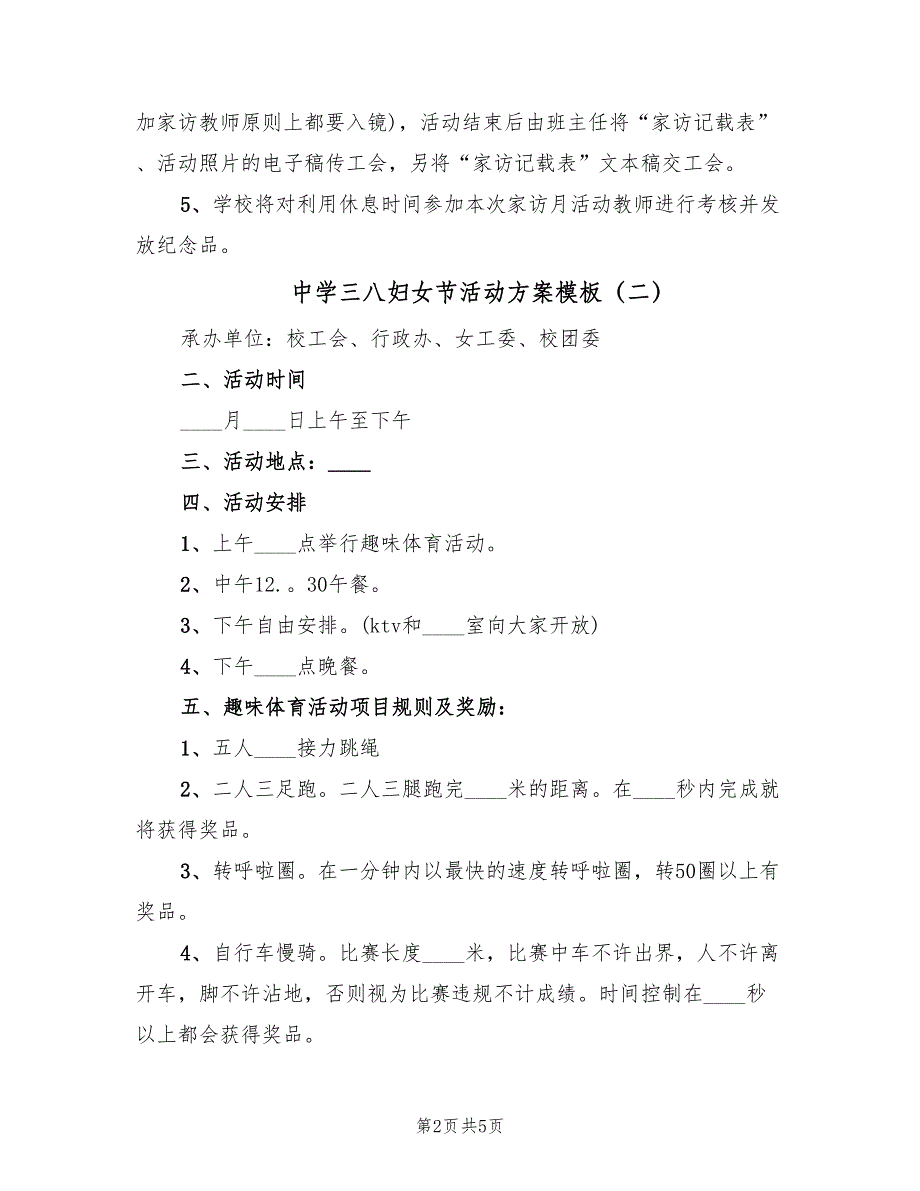 加家访教师原则上都要入镜)，活动结束后由班主任将“家访记载表”
、活动照片的电子稿传工会，另将“家访记载表”文本稿交工会。
5、学校将对利用休息时间参加本次家访月活动教师进行考核并发
放纪念品。
中学三八妇女节活动方案模板（二）
承办单位：校工会、行政办、女工委、校团委
二、活动时间
____月____日上午至下午
三、活动地点：____
四、活动安排
1、上午____点举行趣味体育活动。
2、中午12.。30午餐。
3、下午自由安排。(ktv和____室向大家开放)
4、下午____点晚餐。
五、趣味体育活动项目规则及奖励：
1、五人____接力跳绳
2、二人三足跑。二人三腿跑完____米的距离。在____秒内完成就
将获得奖品。
3、转呼啦圈。在一分钟内以最快的速度转呼啦圈，转50圈以上有
奖品。
4、自行车慢骑。比赛长度____米，比赛中车不许出界，人不许离
开车，脚不许沾地，否则视为比赛违规不计成绩。时间控制在____秒
以上都会获得奖品。
第2页共5页